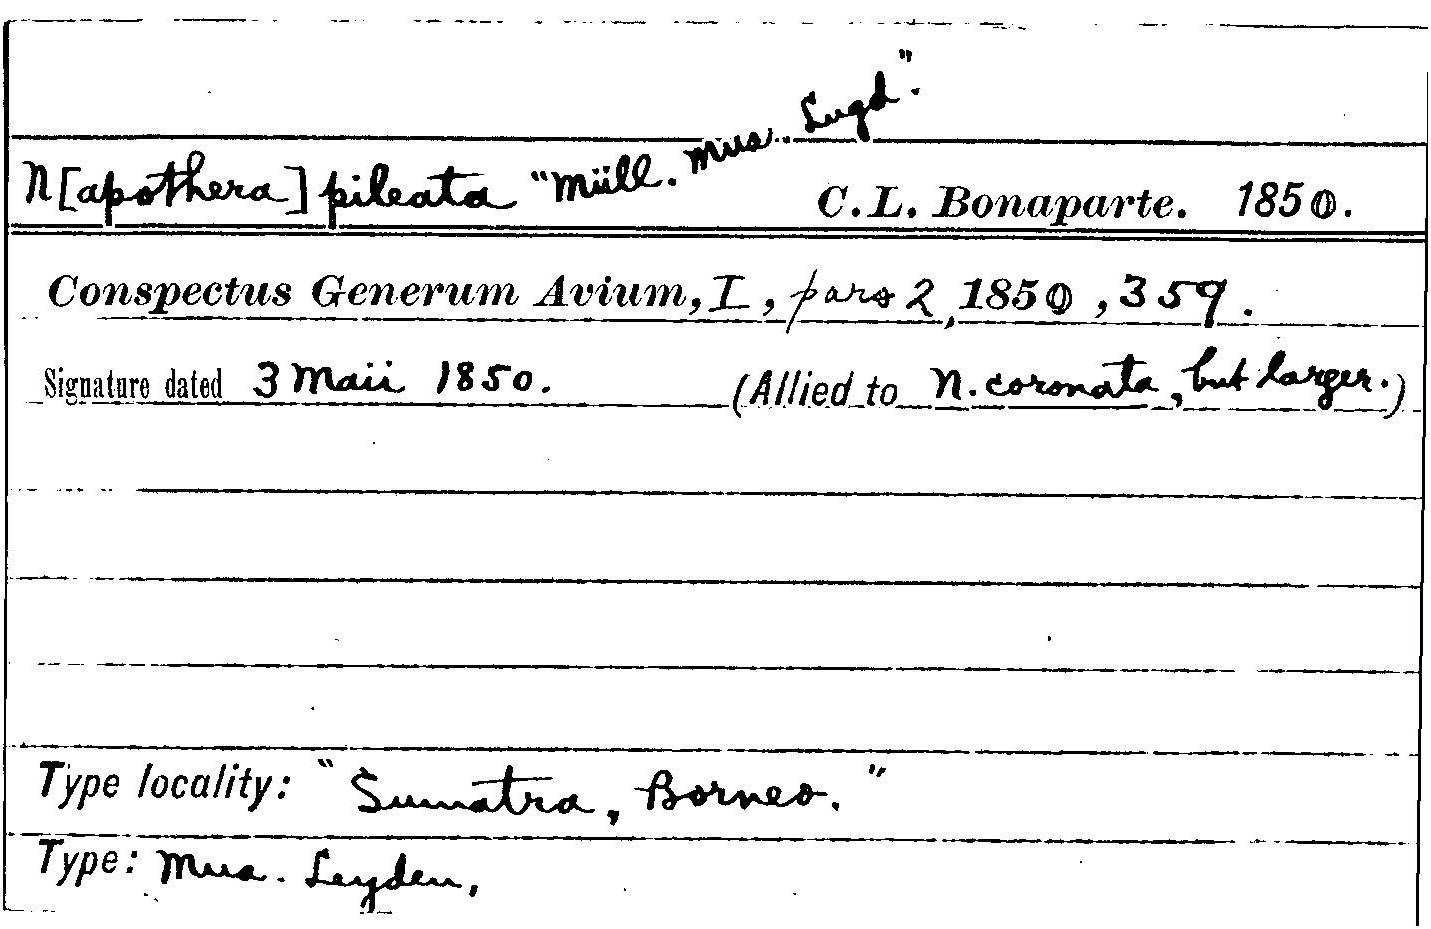 N[apothera] pileata "Müll. Mus. Lugd." C.L. Bonaparte. 1850.
Conspectus Generum Avium, I, pars 2, 1850, 359.
Signature dated 3 Maii 1850. (Allied to N. coronata, but larger.)
Type locality: "Sumatra, Borneo."
Type: Mus. Leyden,